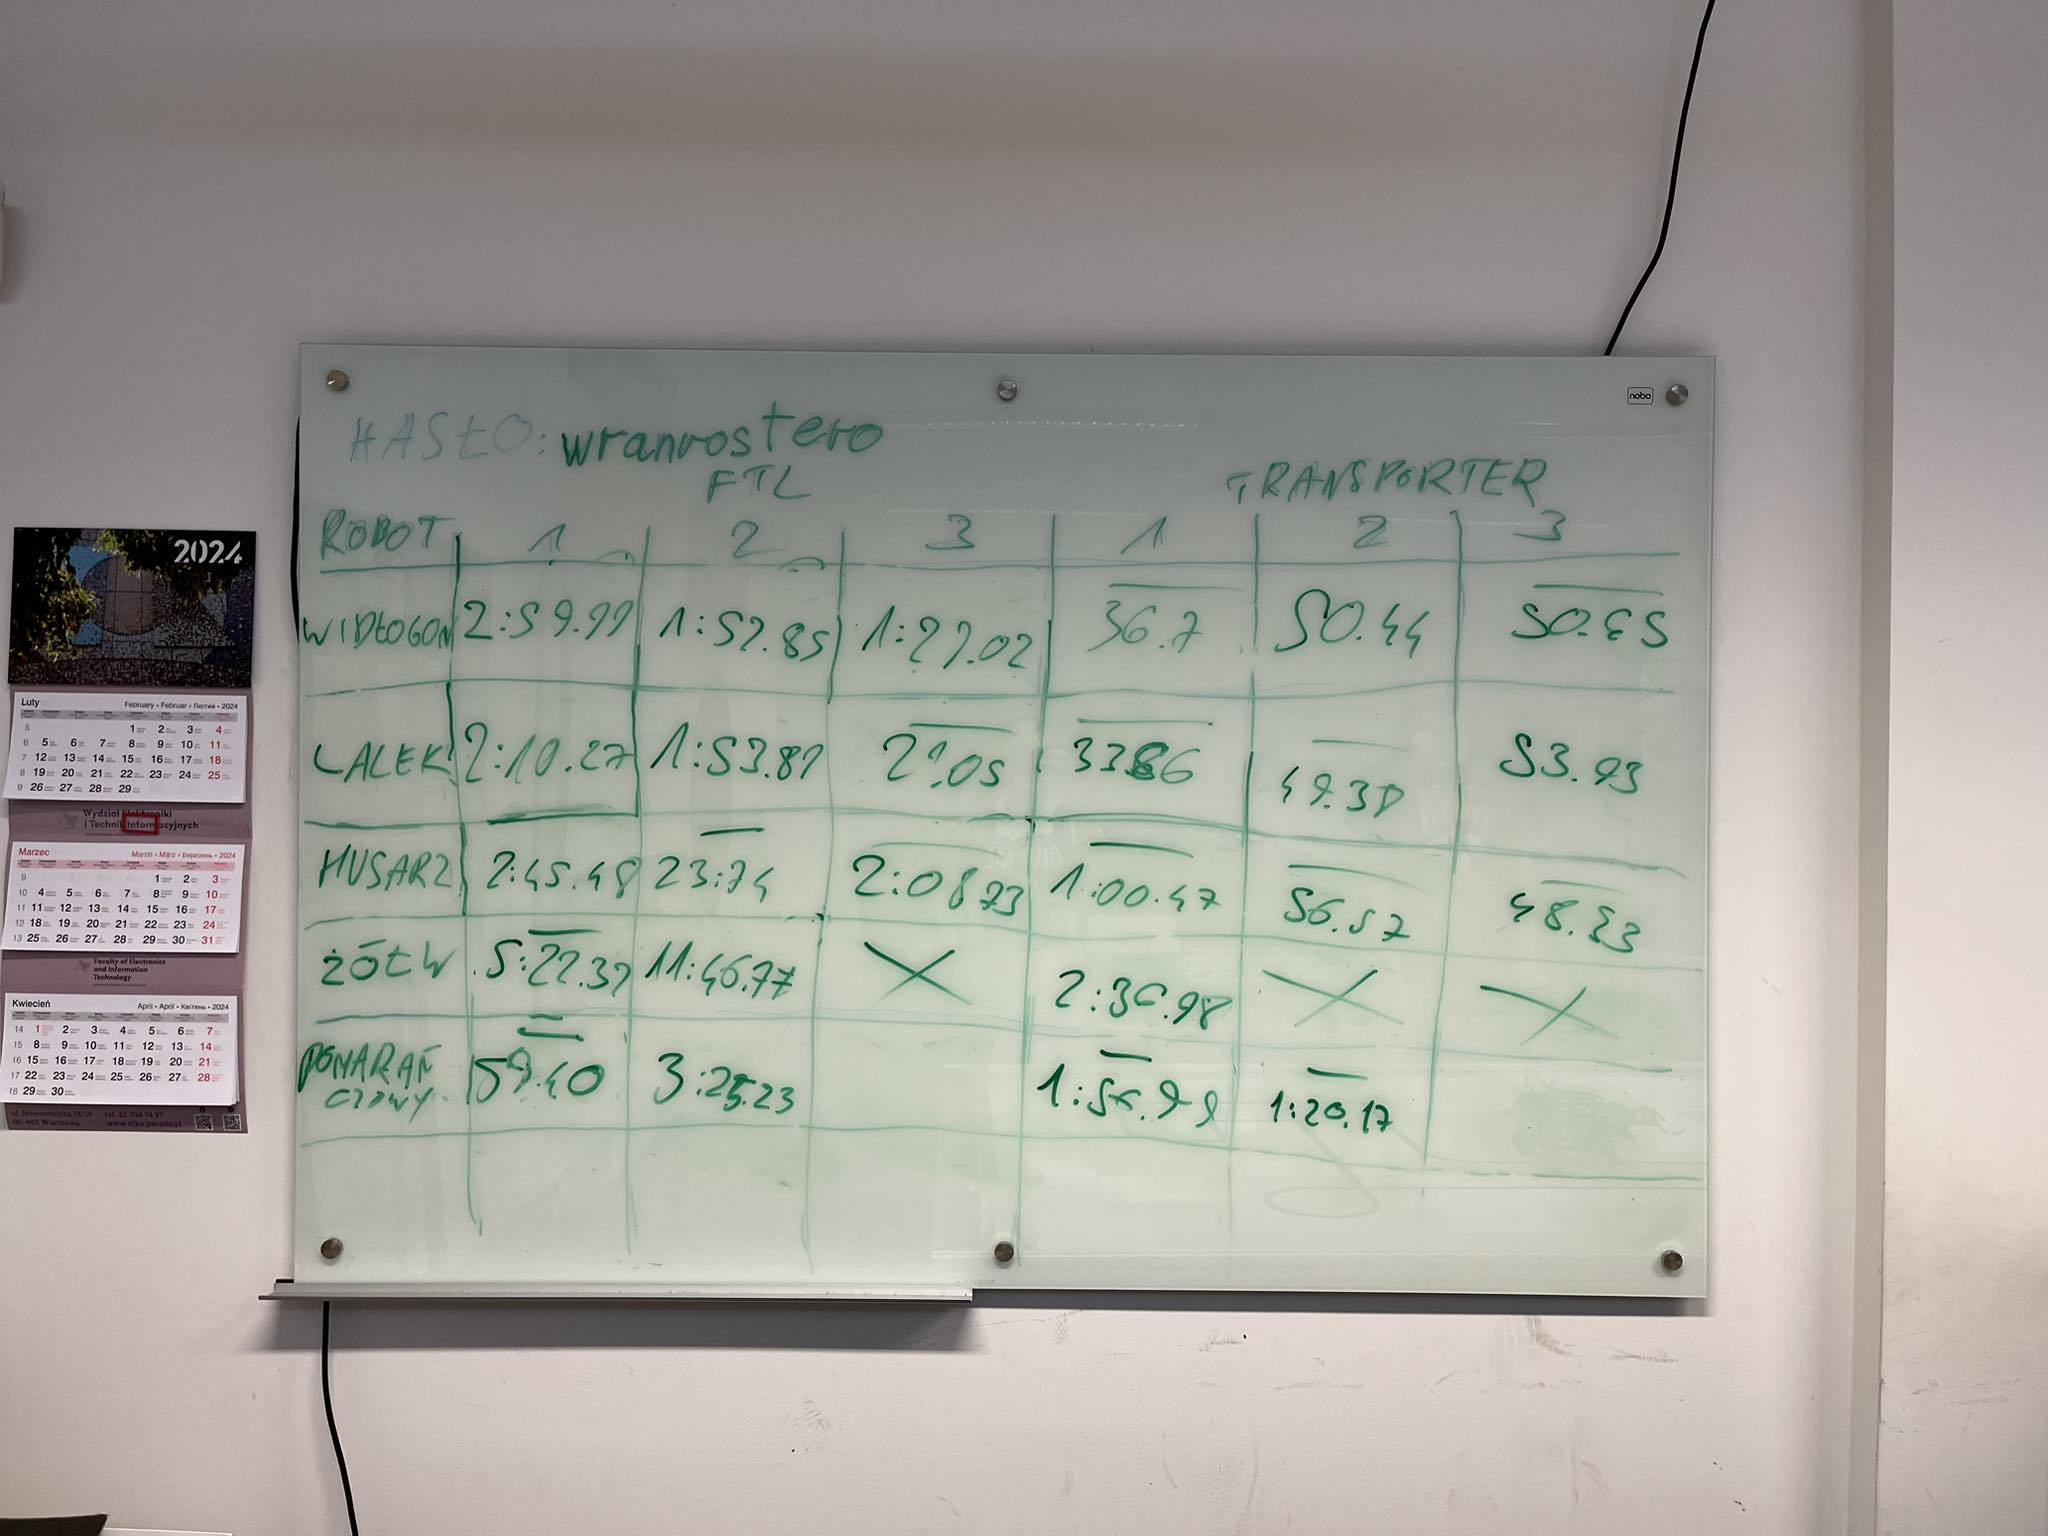 nobo
HASŁO: wranrostero
FTL TRANSPORTER
ROBOT 1 2 3 1 2 3
WIDŁOGON 2:59.99 1:52.85 1:27.02 36.7 50.44 50.45
LALEK 2:10.27 1:53.87 33.86 49.38 53.93
HUSARZ 2:45.48 23:74 2:08.73 1:00.47 56.57 48.33
ŻÓŁW 5:22.37 11:46.77 X 2:36.98 X X
POMARAŃ 59.40 3:25.23 1:56.99 1:20.17
CZOWY
2024
Luty February • Februar • Лютий • 2024
5 1 2 3 4
6 5 6 7 8 9 10 11
7 12 13 14 15 16 17 18
8 19 20 21 22 23 24 25
9 26 27 28 29
Wydział Elektroniki
i Technik Informacyjnych
Marzec March • März • Березень • 2024
9 1 2 3
10 4 5 6 7 8 9 10
11 11 12 13 14 15 16 17
12 18 19 20 21 22 23 24
13 25 26 27 28 29 30 31
Faculty of Electronics
and Information
Technology
Kwiecień April • April • Квітень • 2024
14 1 2 3 4 5 6 7
15 8 9 10 11 12 13 14
16 15 16 17 18 19 20 21
17 22 23 24 25 26 27 28
18 29 30
ul. Nowowiejska 15/19 tel. 22 234 74 97
00-665 Warszawa www.elka.pw.edu.pl